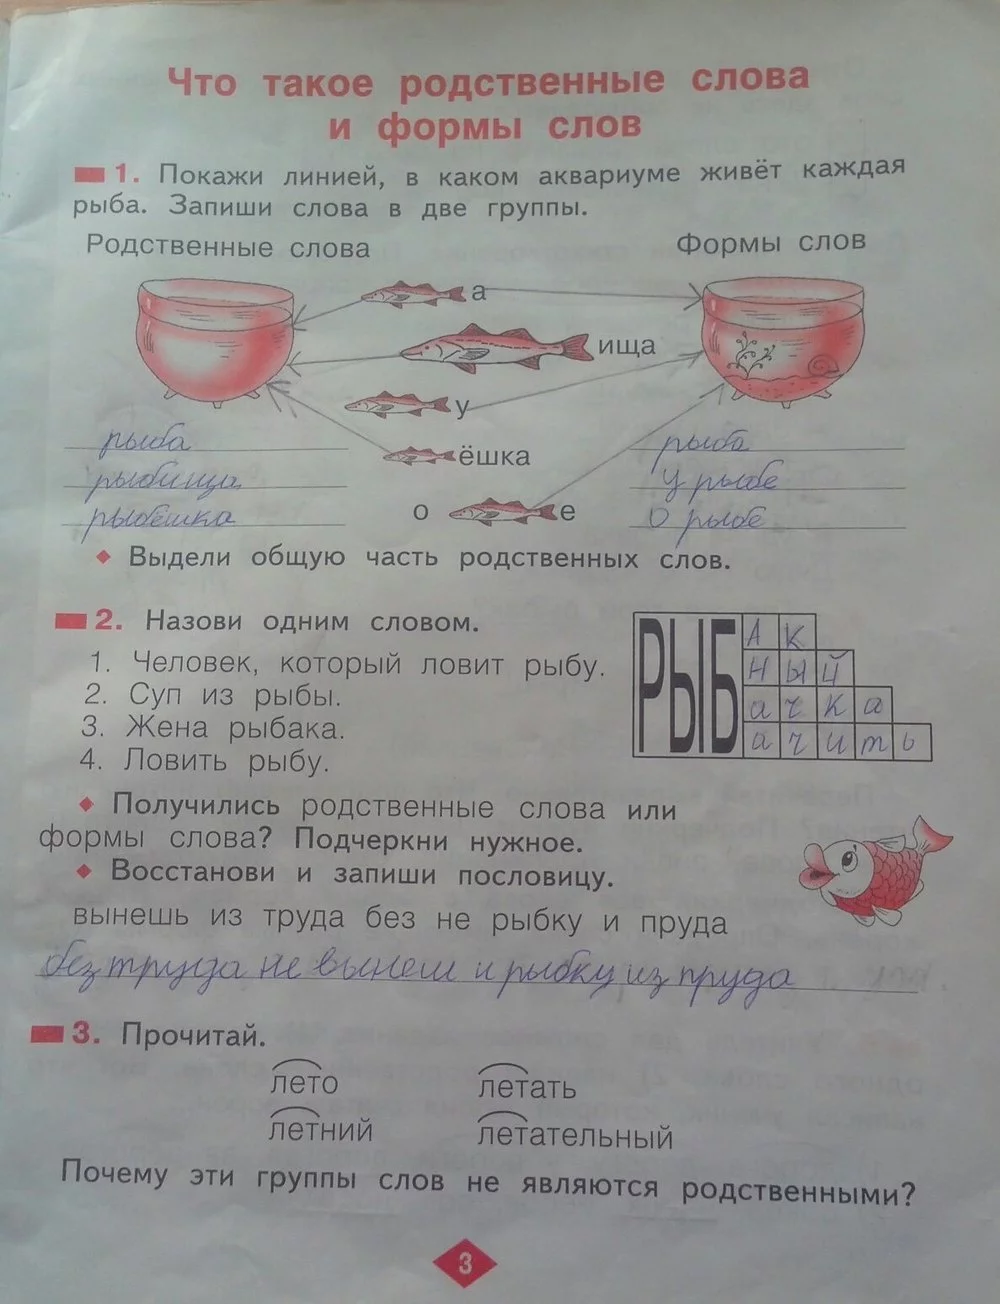 Что такое родственные слова
и формы слов
1. Покажи линией, в каком аквариуме живёт каждая
рыба. Запиши слова в две группы.
Родственные слова Формы слов
а
ища
у
ёшка
о е
рыба рыба
рыбища у рыбе
рыбёшка о рыбе
◆ Выдели общую часть родственных слов.
2. Назови одним словом.
1. Человек, который ловит рыбу.
2. Суп из рыбы.
3. Жена рыбака.
4. Ловить рыбу.
РЫБ
А К
Н Ы Й
а ч к а
а ч и т ь
◆ Получились родственные слова или
формы слова? Подчеркни нужное.
◆ Восстанови и запиши пословицу.
вынешь из труда без не рыбку и пруда
без труда не вынеш и рыбку из пруда
3. Прочитай.
лето летать
летний летательный
Почему эти группы слов не являются родственными?
3